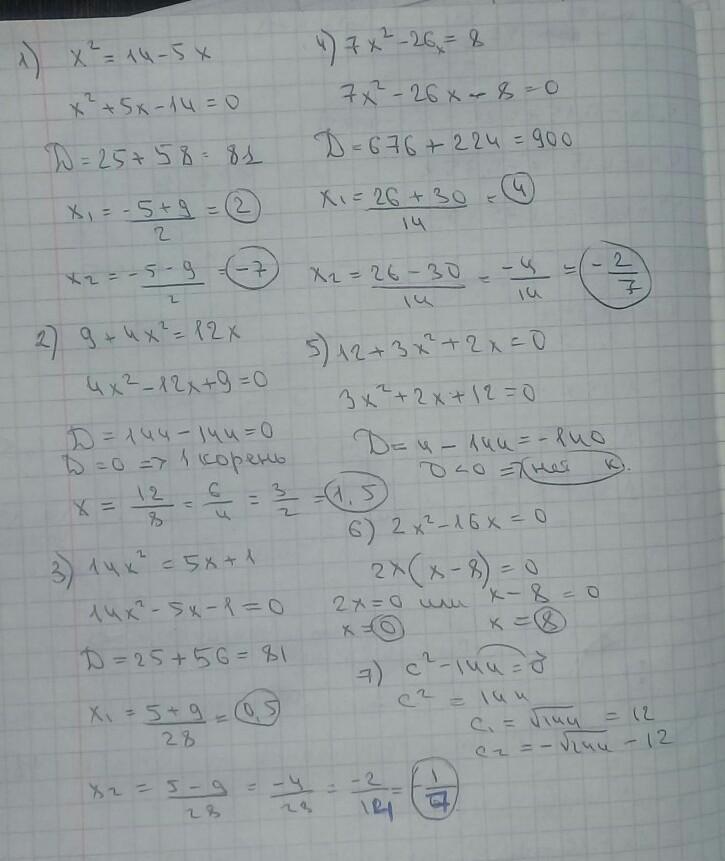 1) x² = 14 - 5x
x² + 5x - 14 = 0
D = 25 + 58 = 81
x₁ = (-5 + 9)/2 = 2
x₂ = (-5 - 9)/2 = -7
2) 9 + 4x² = 12x
4x² - 12x + 9 = 0
D = 144 - 144 = 0
D = 0 => 1 корень
x = 12/8 = 6/4 = 3/2 = 1,5
3) 14x² = 5x + 1
14x² - 5x - 1 = 0
D = 25 + 56 = 81
x₁ = (5 + 9)/28 = 0,5
x₂ = (5 - 9)/28 = -4/28 = -2/14 = -1/7
4) 7x² - 26x = 8
7x² - 26x - 8 = 0
D = 676 + 224 = 900
x₁ = (26 + 30)/14 = 4
x₂ = (26 - 30)/14 = -4/14 = -2/7
5) 12 + 3x² + 2x = 0
3x² + 2x + 12 = 0
D = 4 - 144 = -140
D < 0 => нет к.
6) 2x² - 16x = 0
2x(x - 8) = 0
2x = 0 или x - 8 = 0
x = 0 x = 8
7) c² - 144 = 0
c² = 144
c₁ = √144 = 12
c₂ = -√144 - 12